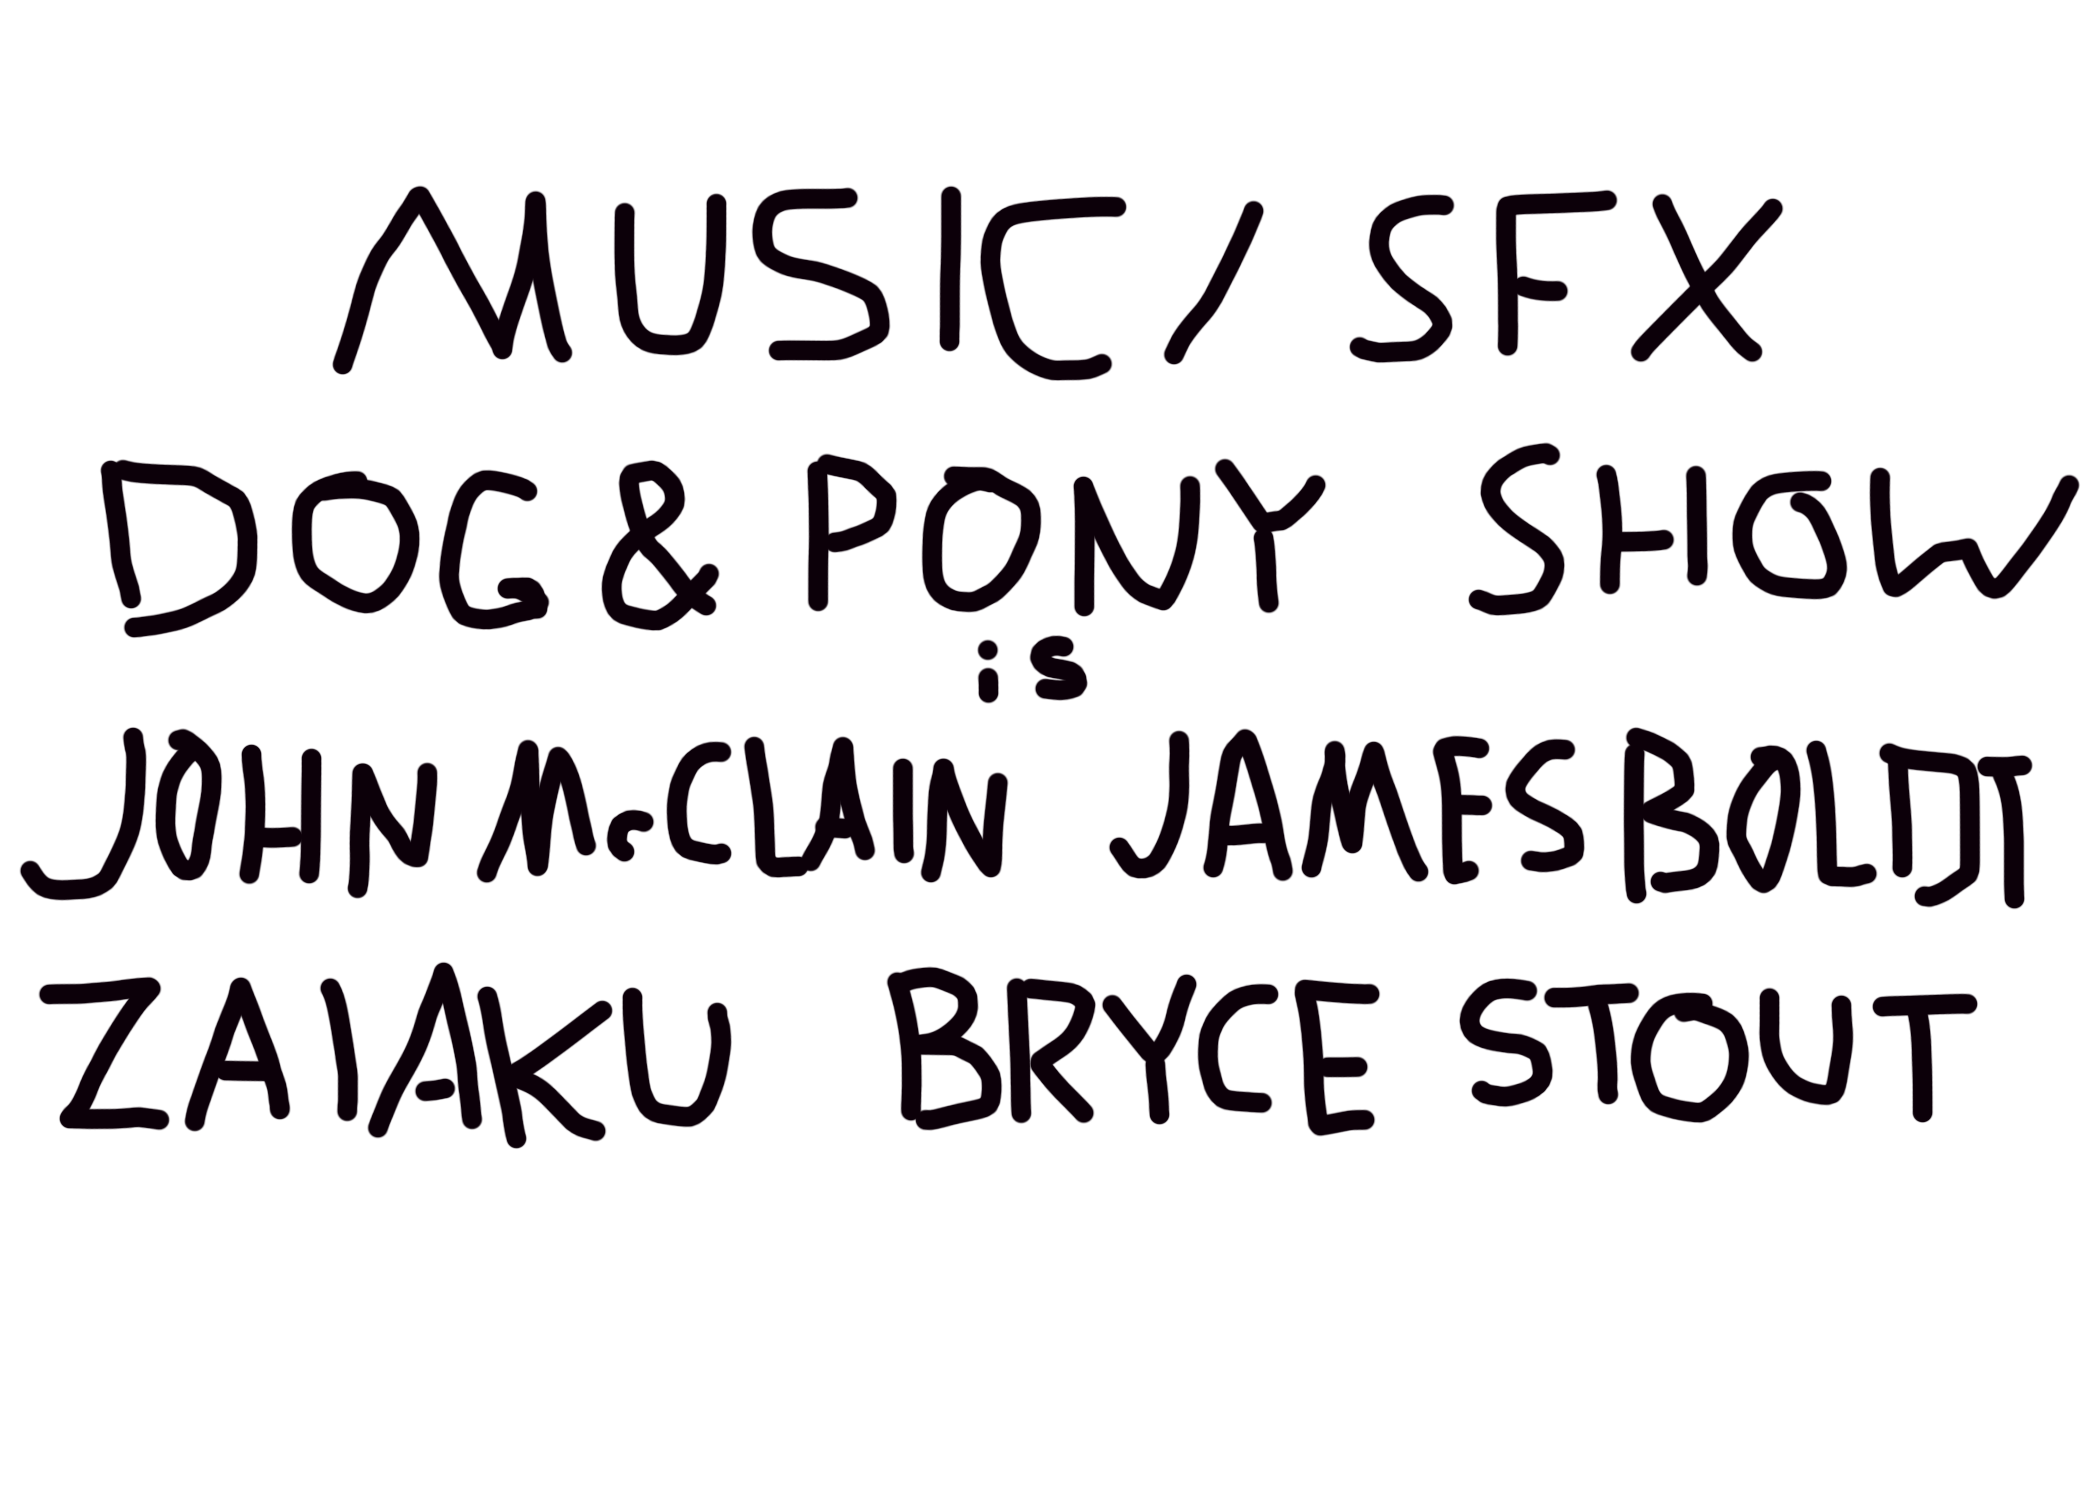 MUSIC/ SFX
DOG & PONY SHOW
is
JOHN McCLAIN JAMES BOLDT
ZAIAKU BRYCE STOUT